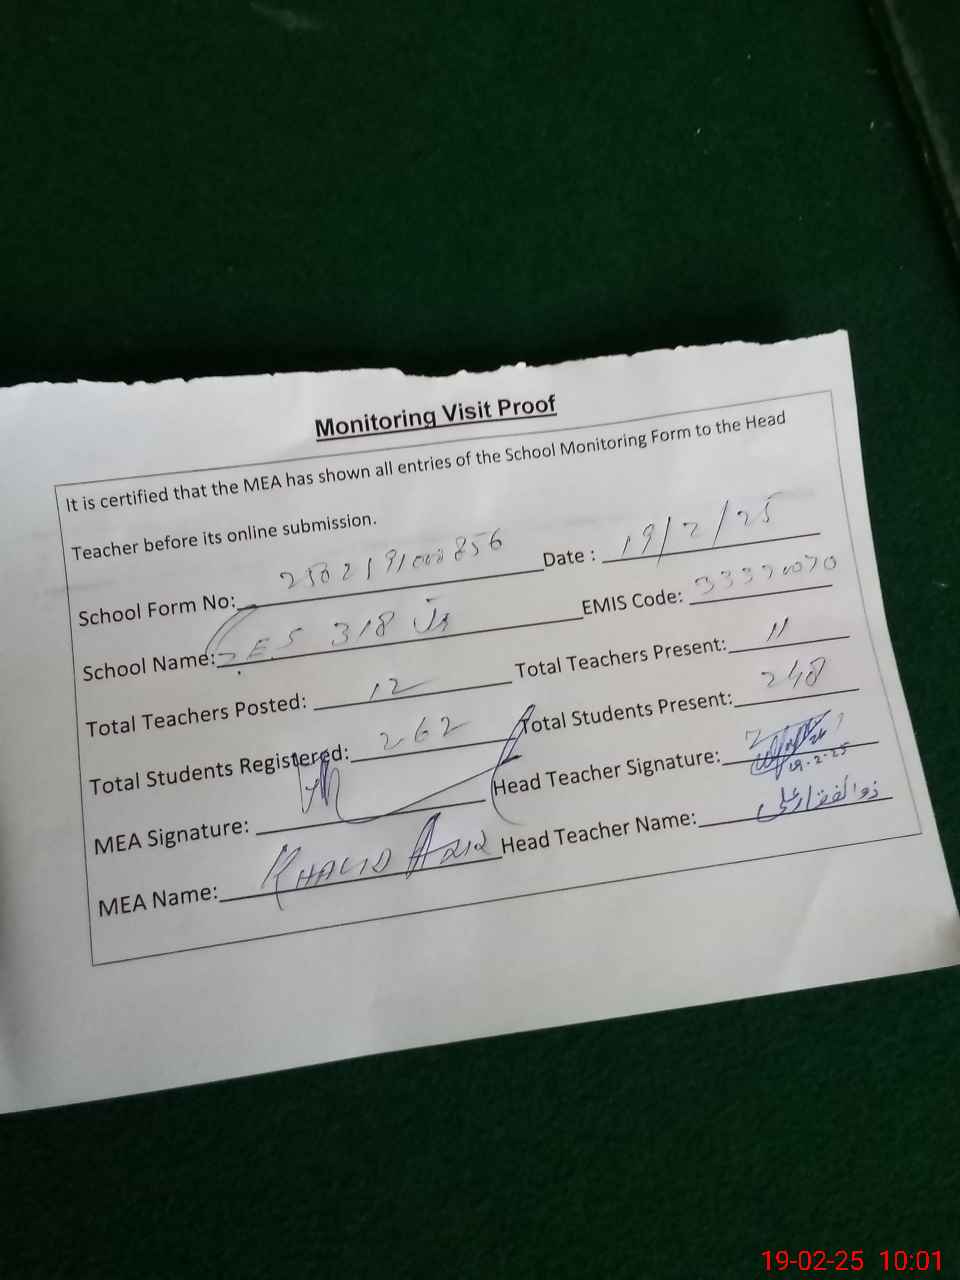 Monitoring Visit Proof
It is certified that the MEA has shown all entries of the School Monitoring Form to the Head
Teacher before its online submission.
School Form No: Date : 19/2/25
School Name: GES 318 EMIS Code:
Total Teachers Posted: 12 Total Teachers Present: 11
Total Students Registered: 262 Total Students Present: 248
MEA Signature: Head Teacher Signature: 19-2-25
MEA Name: KHALID Head Teacher Name: ذوالفقار علی
19-02-25 10:01